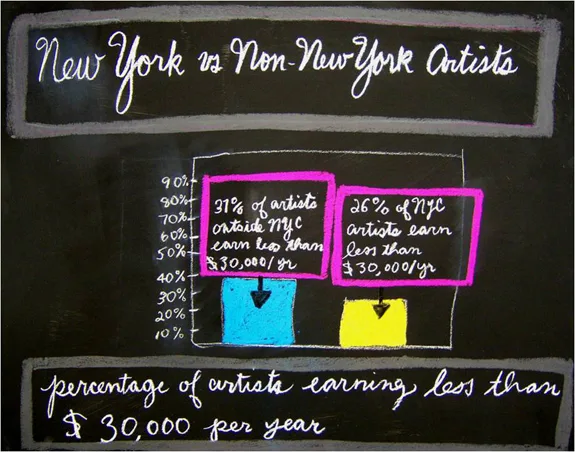 New York vs Non-New York Artists
90%
80%
70%
60%
50%
40%
30%
20%
10%
31% of artists
outside NYC
earn less than
$30,000/yr
26% of NYC
artists earn
less than
$30,000/yr
percentage of artists earning less than
$30,000 per year